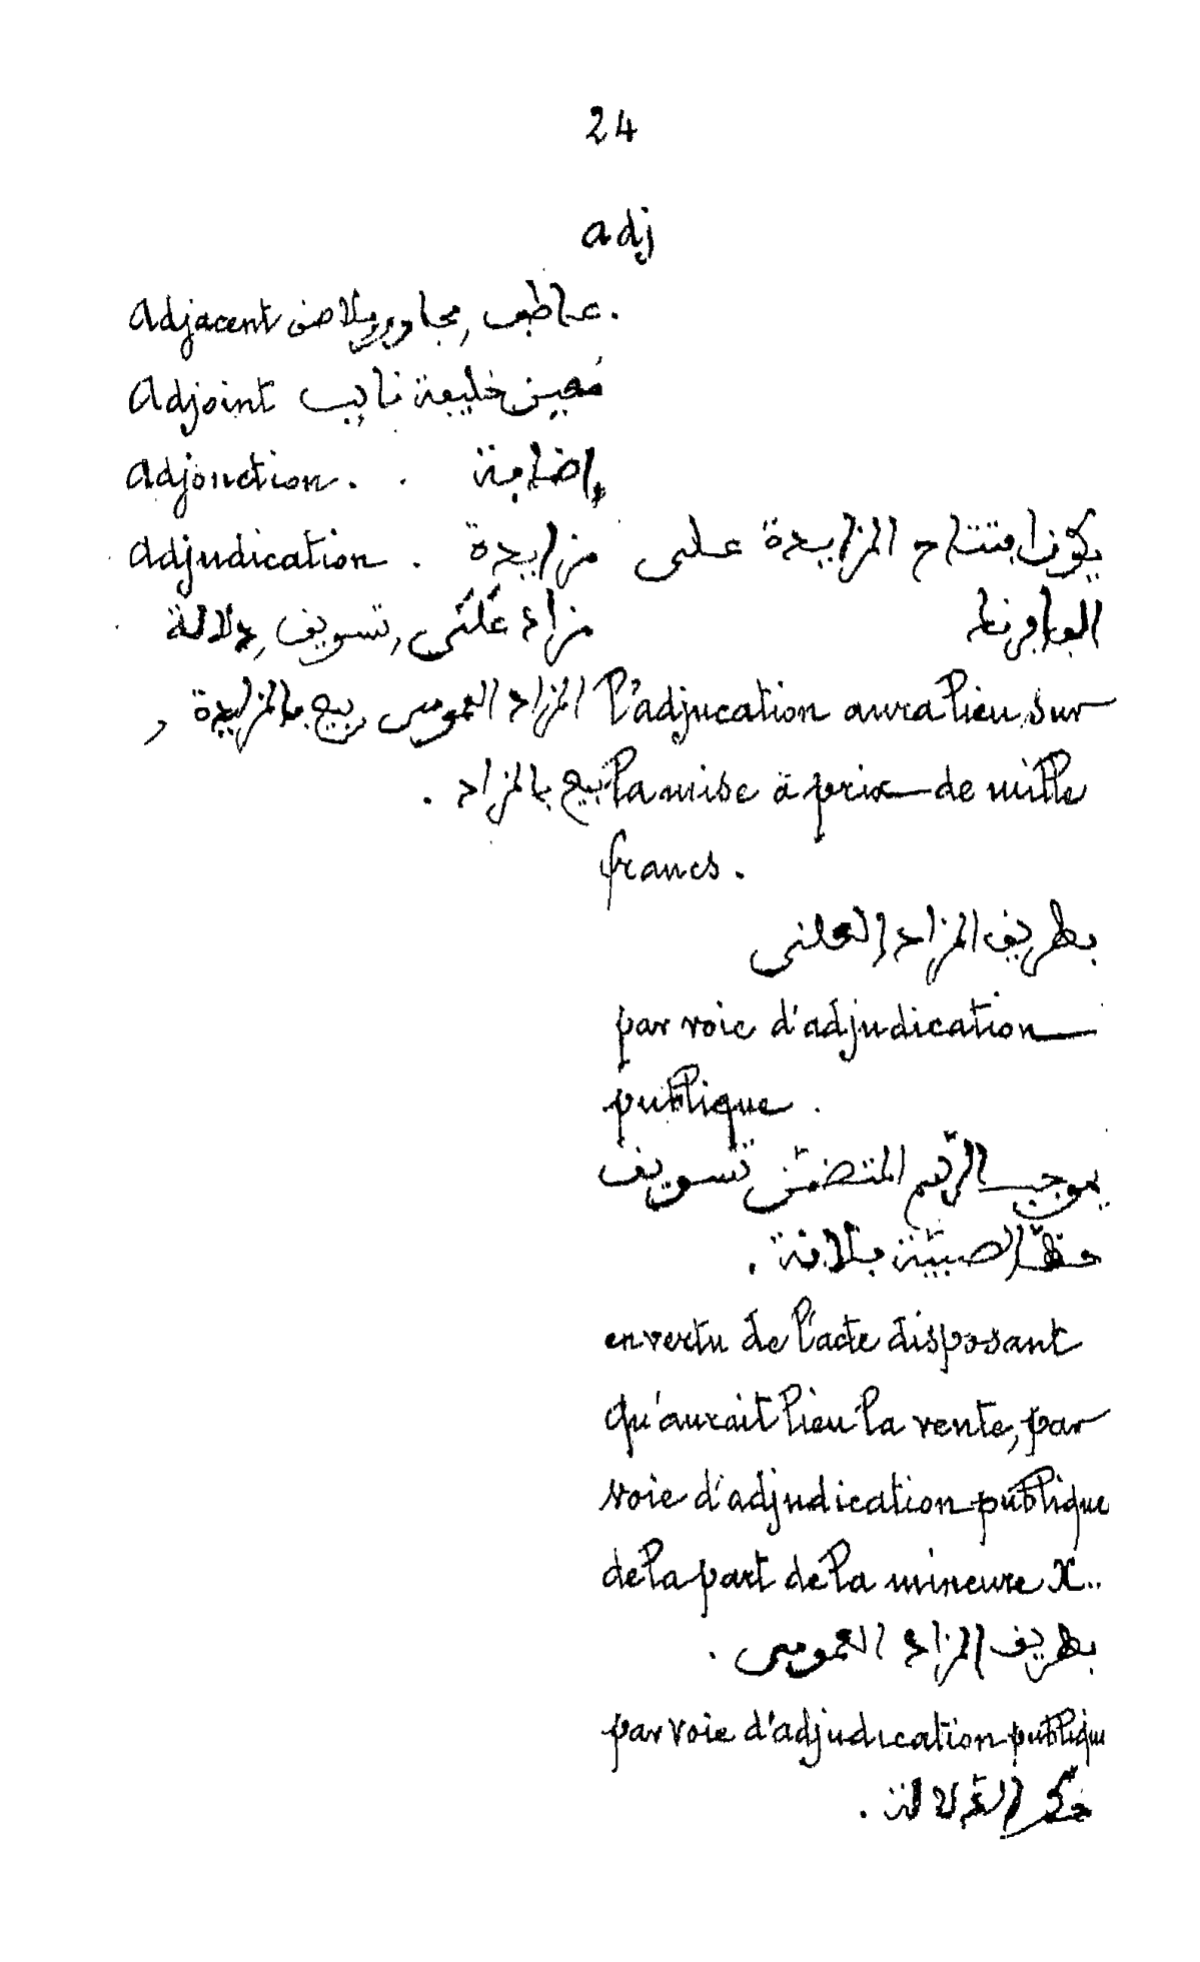 24
adj
Adjacent عاطف, مجاور, ملاصق.
Adjoint مُعين خليفة نايب
Adjonction. . إضافة
Adjudication. مزايدة
مزاد عَلَني, تسويق, دلالة
المزاد العمومي, بيع بالمزايدة,
بيع بالمزاد.
يكون افتتاح المزايدة على
ألف افرنك
l'adjucation aura lieu, sur
la mise à prix de mille
francs.
بطريق المزاد العلني
par voie d'adjudication
publique.
بموجب الرّقيم المتضمّن تسويق
حظّ الصبيّة فلانة.
en vertu de l'acte disposant
qu'aurait lieu la vente, par
voie d'adjudication publique
de la part de la mineure X..
بطريق المزاد العمومي.
par voie d'adjudication publique
الدّلالة.